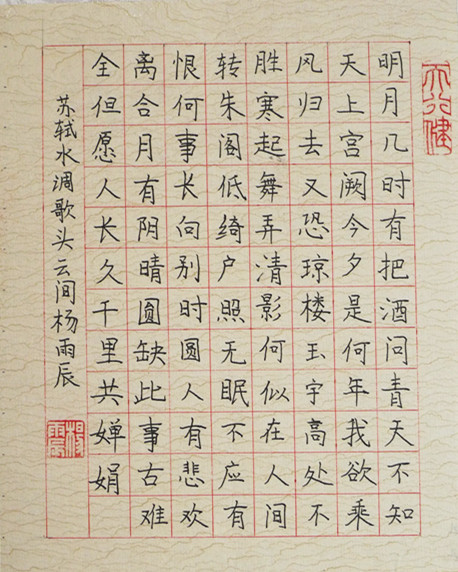 天行健
明月几时有把酒问青天不知
天上宫阙今夕是何年我欲乘
风归去又恐琼楼玉宇高处不
胜寒起舞弄清影何似在人间
转朱阁低绮户照无眠不应有
恨何事长向别时圆人有悲欢
离合月有阴晴圆缺此事古难
全但愿人长久千里共婵娟
苏轼水调歌头云间杨雨辰